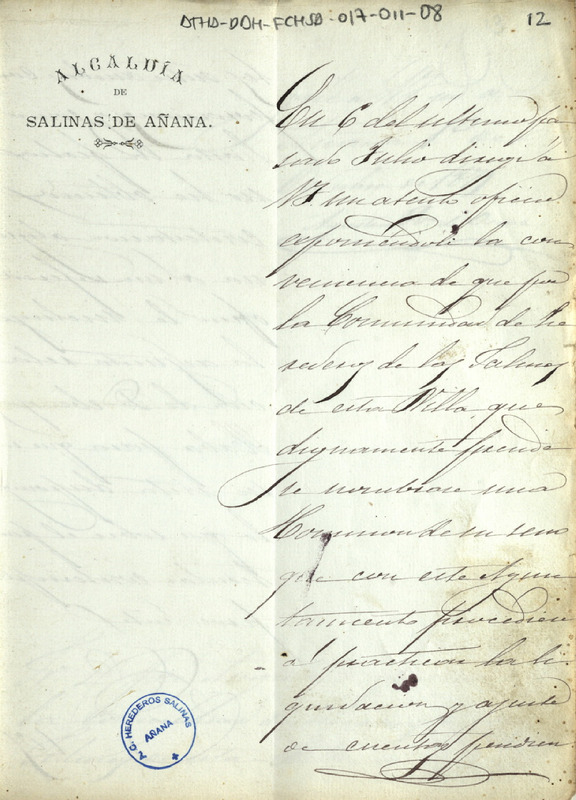 ATHA-DAH-FCHSA-017-011-08
12
ALCALDÍA
DE
SALINAS DE AÑANA.
En 6 del último pa
sado Julio dirigí á
V. un atento oficio
esponiéndole la con
veniencia de que por
la Comunidad de he
rederos de las Salinas
de esta Villa que
dignamente preside
se nombrase una
Comision de su seno
que con este Ayun
tamiento procediera
á practicar la li-
quidacion y ajuste
de cuentas pendien
A. C. HEREDEROS SALINAS
AÑANA